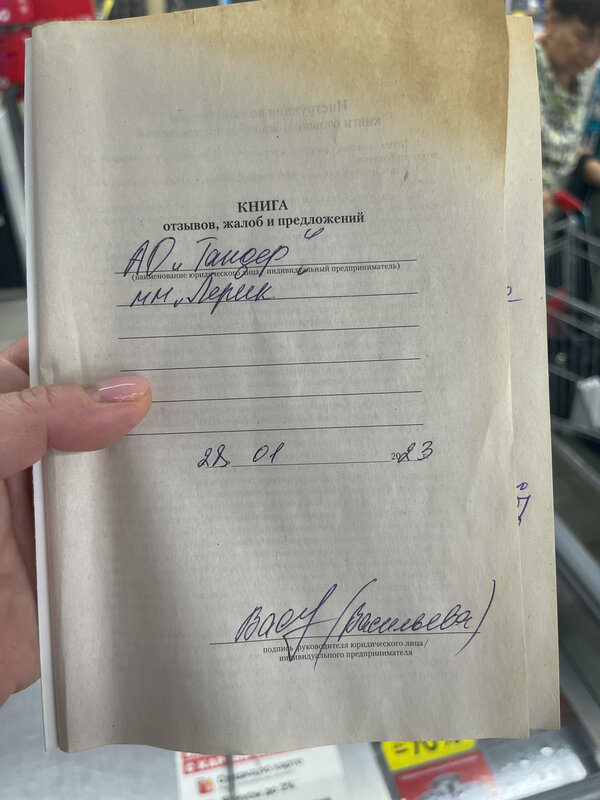 КНИГА
отзывов, жалоб и предложений
АО „Тандер“
(наименование юридического лица / индивидуальный предприниматель)
мм „Лерик“
28 01 2023
Вас (Васильева)
подпись руководителя юридического лица /
индивидуального предпринимателя